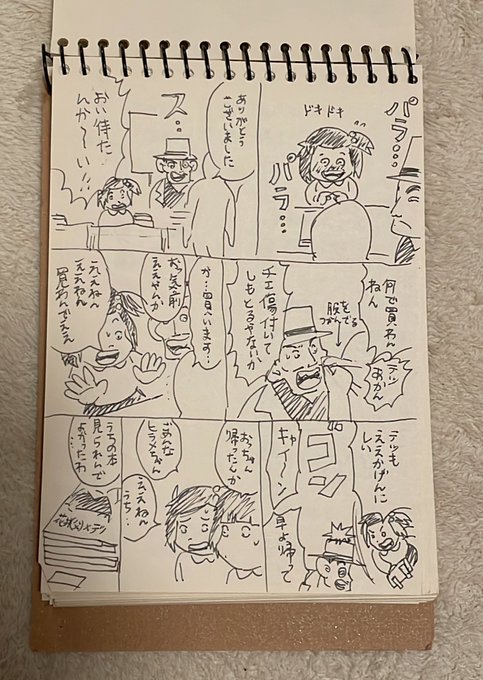 パラ…
ドキドキ
パラ…
ありがとう
ございました
ス…
おい待た
んか〜い!!
何で買わん
ねん
テツ
あかん
服を
つかんでる
チエ傷付いて
しもとるやないか
か…買います…
おっ気前
ええやんか
ええねん
ええねん
買わんでええ
テツも
ええかげんに
しい
コン
キャイ〜ン
早よ帰って
おっちゃん
帰ったんか
ごめんな
ヒラメちゃん
ええねん
うち…
うちの本
見られんで
よかったわ
…
花井×テツ